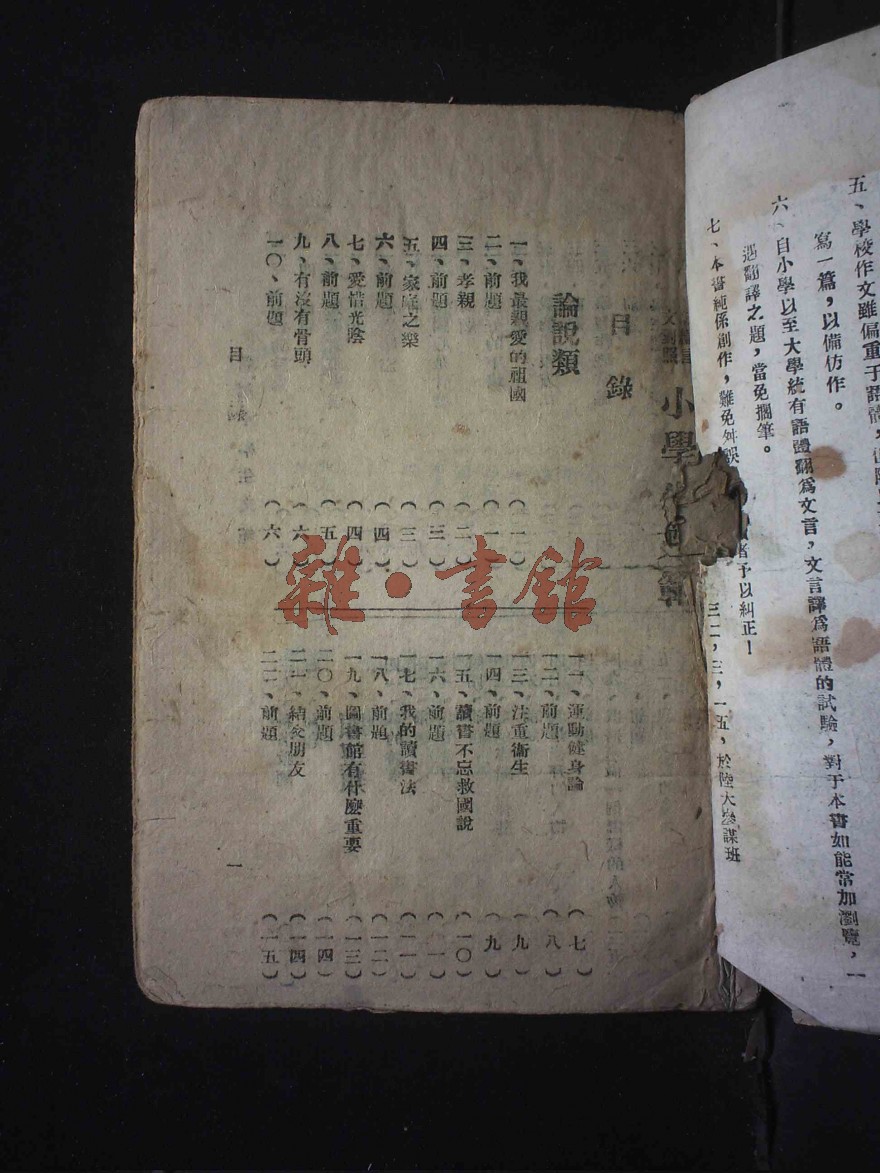 五、學校作文雖偏重于語體，
寫一篇，以備仿作。
六、自小學以至大學統有語體翻爲文言，文言譯爲語體的試驗，對于本書如能常加瀏覽，一
遇翻譯之題，當免擱筆。
七、本書純係創作，難免舛誤，者予以糾正！
三二，三，一五，於陸大參謀班
小學
目錄
論說類
一、我最親愛的祖國（一）
二、前題（一）
三、孝親（二）
四、前題（三）
五、家庭之樂（三）
六、前題（四）
七、愛惜光陰（四）
八、前題（五）
九、有沒有骨頭（六）
一〇、前題（六）
一一、運動健身論（七）
一二、前題（八）
一三、注重衛生（九）
一四、前題（九）
一五、讀書不忘救國說（一〇）
一六、前題（一一）
一七、我的讀書法（一一）
一八、前題（一二）
一九、圖書館有什麼重要（一三）
二〇、前題（一四）
二一、結交朋友（一四）
二二、前題（一五）
目
一
雜·書館